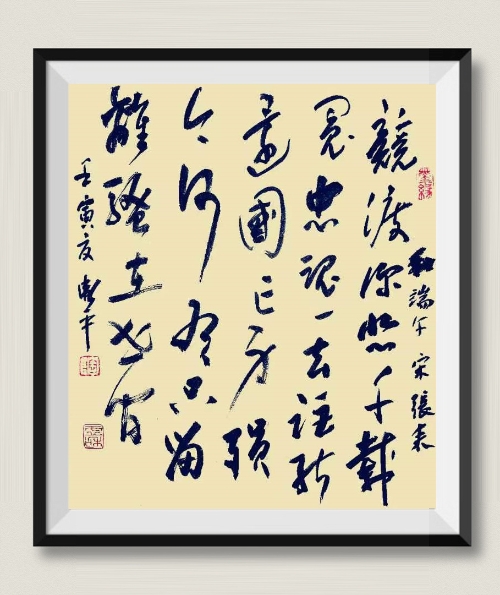 和端午 宋 張耒
競渡深悲千載
冤忠魂一去詎能
還國亡身殞
今何有只留
離騷在世間
壬寅夏